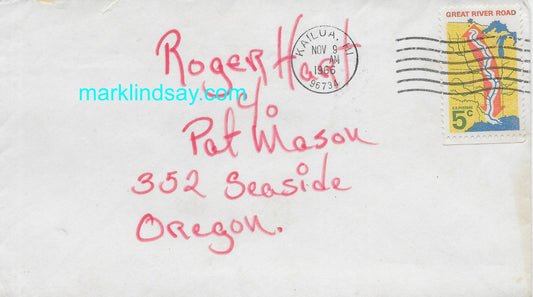 GREAT RIVER ROAD
KAILUA, HI
NOV 9
AM
1966
96734
U.S. POSTAGE
5c
Roger Hart
marklindsay.com
c/o
Pat Mason
352 Seaside
Oregon.